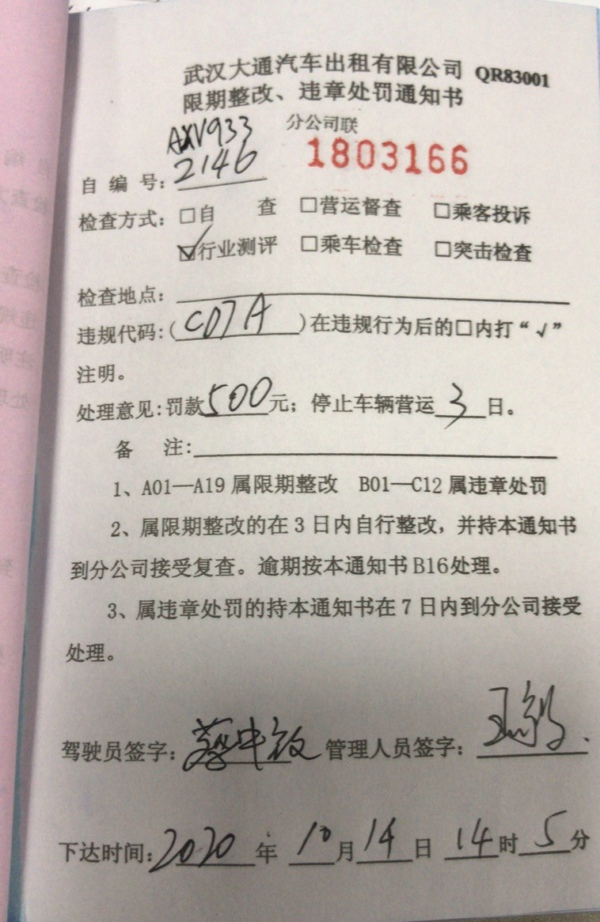 武汉大通汽车出租有限公司 QR83001
限期整改、违章处罚通知书
分公司联
AXV933
1803166
自编号: 2146
检查方式: □自 查 □营运督查 □乘客投诉
☑行业测评 □乘车检查 □突击检查
检查地点:
违规代码:(C07A)在违规行为后的□内打“√”
注明。
处理意见:罚款500元; 停止车辆营运3日。
备 注:
1、A01—A19 属限期整改 B01—C12 属违章处罚
2、属限期整改的在 3 日内自行整改,并持本通知书
到分公司接受复查。逾期按本通知书 B16 处理。
3、属违章处罚的持本通知书在 7 日内到分公司接受
处理。
驾驶员签字: 管理人员签字:
下达时间:2020年 10月14日 14时5分